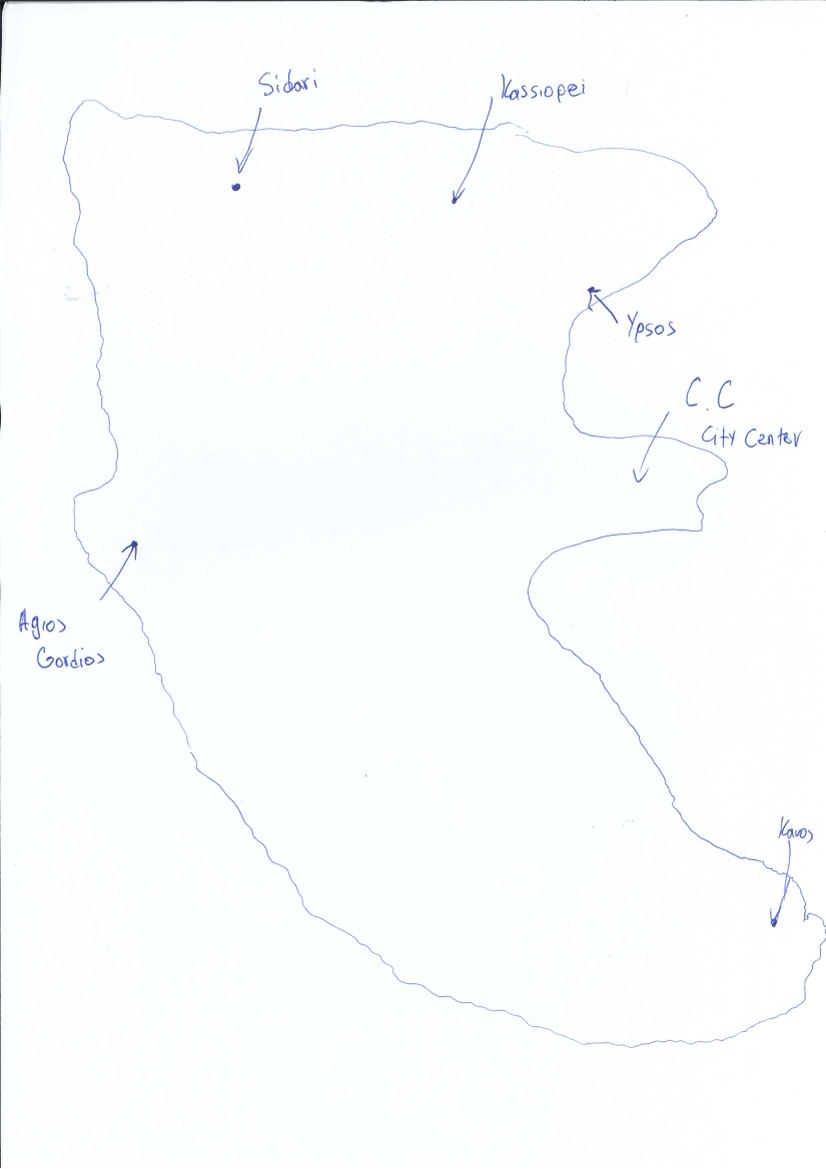 Sidari
Kassiopei
Ypsos
C.C
City Center
Agios
Gordios
Kavos